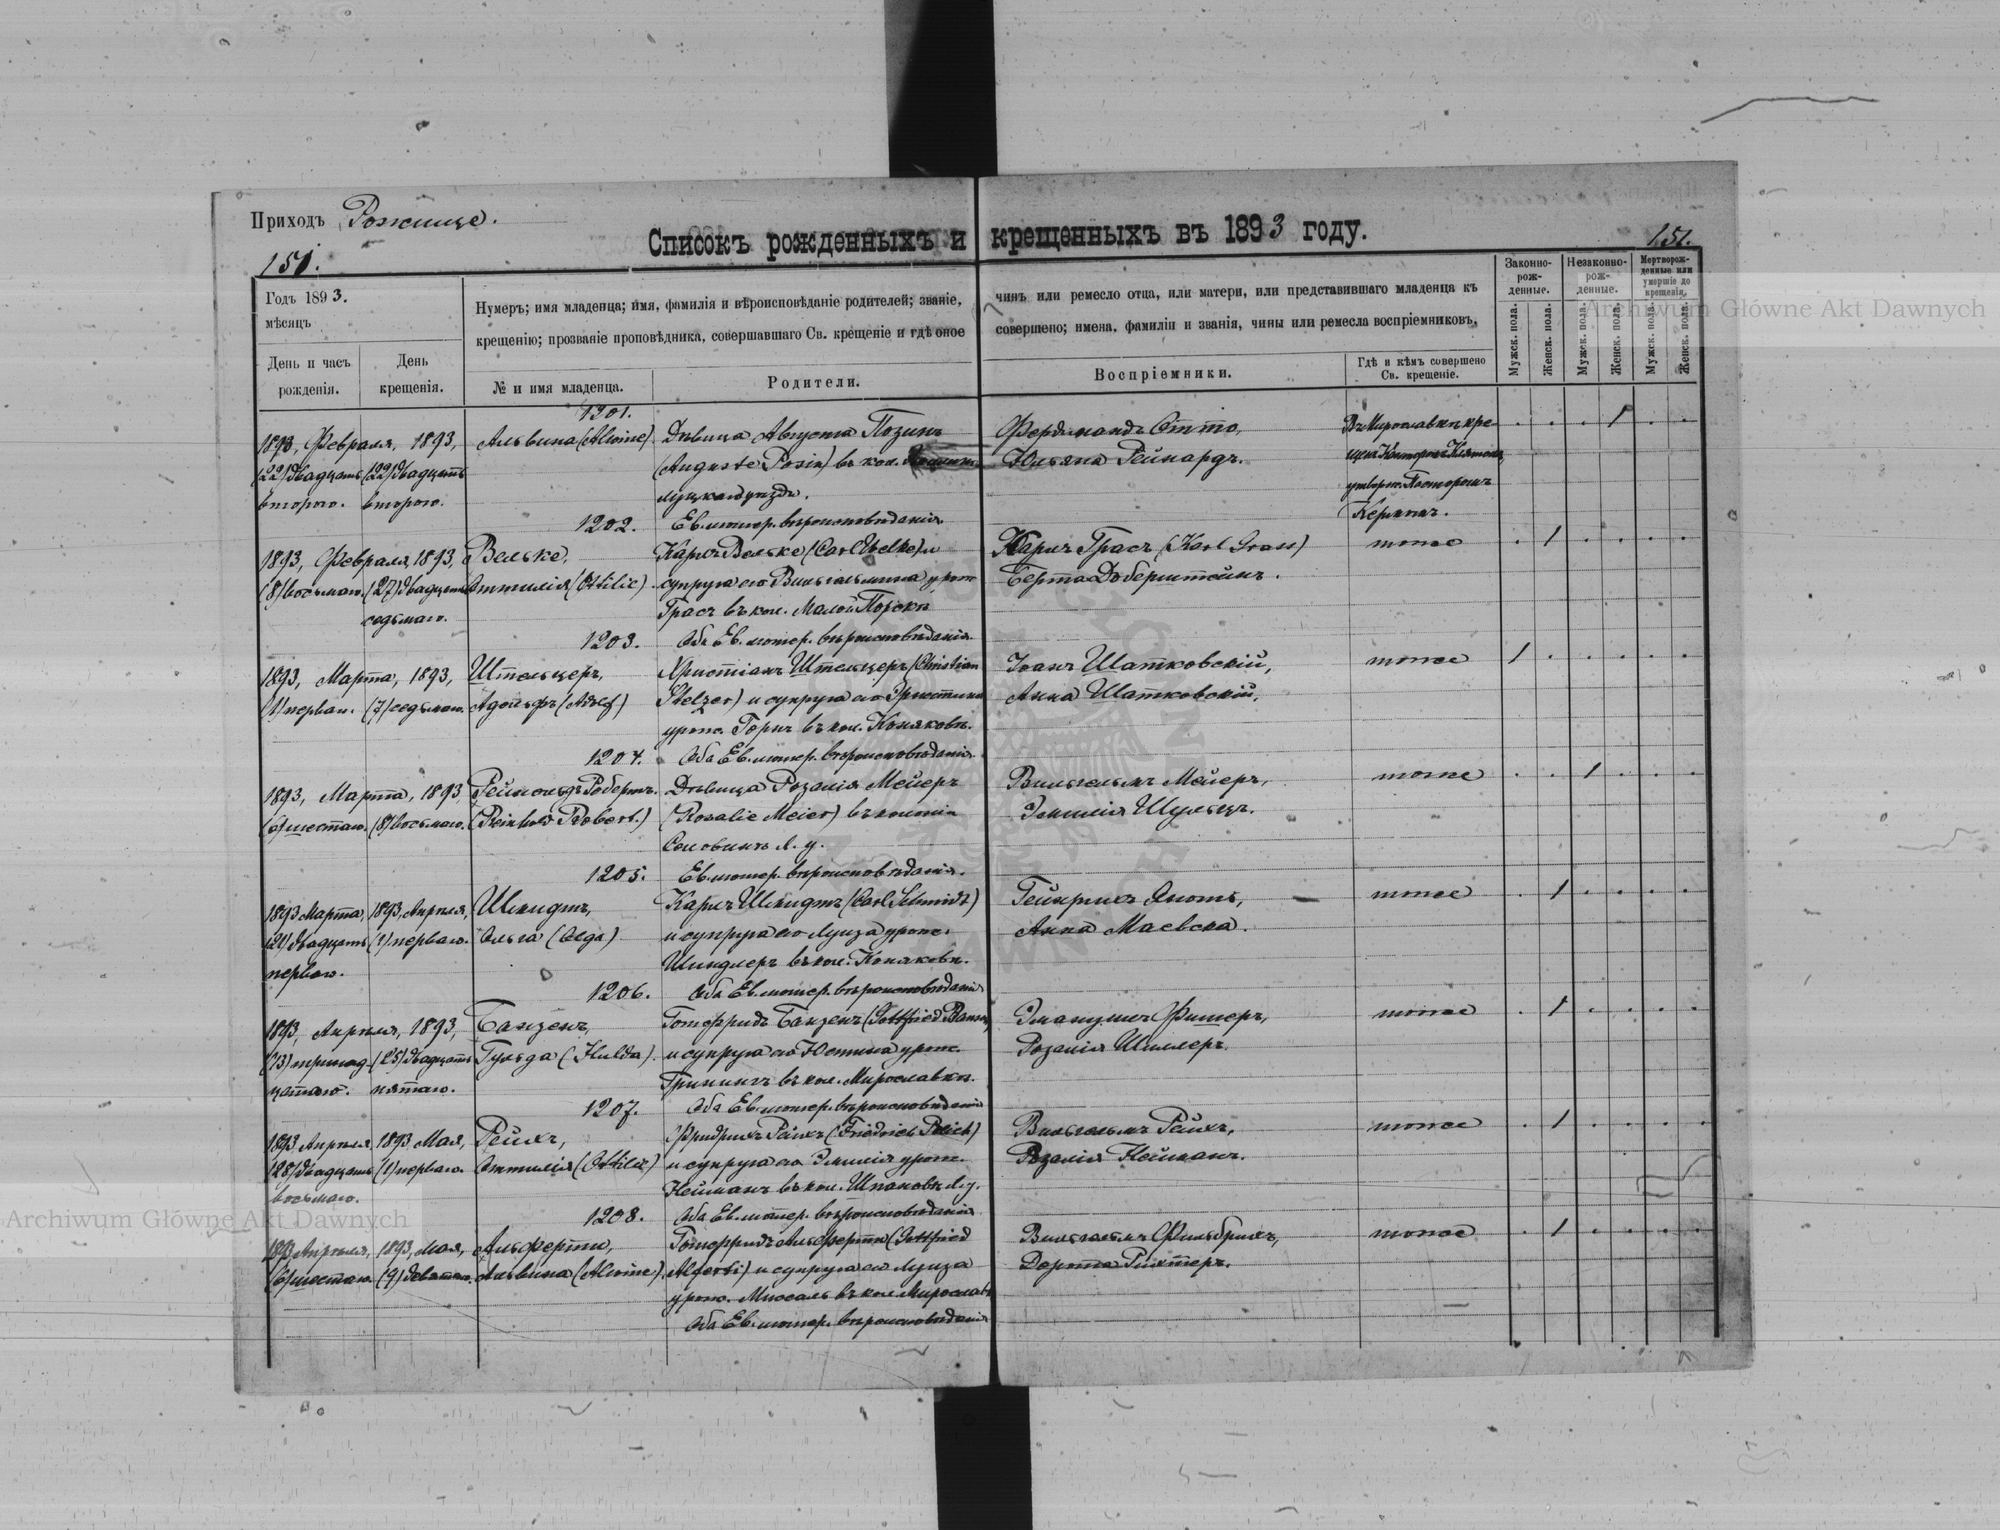 Приходъ Рожище.
Списокъ рожденныхъ и крещенныхъ въ 1893 году.
151.
151.
Годъ 1893.
мѣсяцъ
День и часъ рожденія.
День крещенія.
Нумеръ; имя младенца; имя, фамилія и вѣроисповѣданіе родителей; званіе,
крещенію; прозваніе проповѣдника, совершавшаго Св. крещеніе и гдѣ оное
№ и имя младенца.
Родители.
чинъ или ремесло отца, или матери, или представившаго младенца къ
совершено; имена, фамиліи и званія, чины или ремесла воспріемниковъ.
Воспріемники.
Гдѣ и кѣмъ совершено
Св. крещеніе.
Законно-
рож-
денные.
Незаконно-
рож-
денные.
Мертворож-
денные или
умершіе до
крещенія.
Мужск. пола.
Женск. пола.
Мужск. пола.
Женск. пола.
Мужск. пола.
Женск. пола.
1201.
1893, Февраля, 1893, Альвина (Alwine) Дѣвица Августа Позинъ Фердинандъ Отто,
(22) двадцать (22) двадцать (Auguste Posin) въ кол. Юльяна Рейнардъ.
второго. второго.
1202. Ев. лютер. вѣроисповѣданія
1893, Февраля, 1893, Вельке, Карлъ Вельке (Carl Welke) и Карлъ Грасъ (Karl Grass) тоже
(8) восьмаго (27) двадцать Оттилія (Ottilie) супруга его Вильгельмина урож. Берта Доберштейнъ.
седьмаго. Грасъ въ кол. Малой
1203. Оба Ев. лютер. вѣроисповѣданія
1893, Марта, 1893, Штельцеръ, Христіанъ Штельцеръ (Christian Іоанъ Шатковскій, тоже
(1) перваго. (7) седьмаго. Адольфъ (Adolf) Stelzer) и супруга его Эрнстина Анна Шатковскій.
урож. въ кол.
1204. Оба Ев. лютер. вѣроисповѣданія
1893, Марта, 1893 Рейнольдъ Робертъ. Дѣвица Розалія Мейеръ Вильгельмъ Мейеръ, тоже
(6) шестаго. (8) восьмаго. (Reinhold Robert.) (Rosalie Meier) въ колоніи Эмилія Шульцъ.
Л. у.
1205. Ев. лютер. вѣроисповѣданія.
1893 Марта, 1893, Апрѣля, Шмидтъ, Карлъ Шмидтъ (Carl Schmidt) тоже
(21) двадцать (1) перваго. Ольга (Olga) и супруга его Луиза урож. Анна Маевска.
перваго. Шиндлеръ въ кол.
1206. Оба Ев. лютер. вѣроисповѣданія
1893, Апрѣля, 1893, Банзенъ, Готфридъ Банзенъ (Gottfried Эмануилъ Фишеръ, тоже
(13) тринад- (25) двадцать Гульда (Hulda). и супруга его Юстина урож. Розалія Шиллеръ.
цатаго. пятаго. въ кол. Мирославка.
1207. Оба Ев. лютер. вѣроисповѣданія
1893 Апрѣля 1893 Мая, Рейхъ, Фридрихъ Рейхъ (Friedrich Reich) Вильгельмъ Рейхъ, тоже
(28) двадцать (1) перваго Оттилія (Ottilie) и супруга его Эмилія урож. Розалія Нейманъ.
восьмаго. Нейманъ въ кол. Л. у.
1208. Оба Ев. лютер. вѣроисповѣданія
1893 Апрѣля, 1893, Мая, Альферти, Готфридъ Альферти (Gottfried Вильгельмъ Фильбрихъ, тоже
(6) шестаго. (9) девятаго. Альвина (Alwine). Alferti) и супруга его Луиза Дорта Рихтеръ.
урож. въ кол.
Оба Ев. лютер. вѣроисповѣданія
Archiwum Główne Akt Dawnych
Archiwum Główne Akt Dawnych